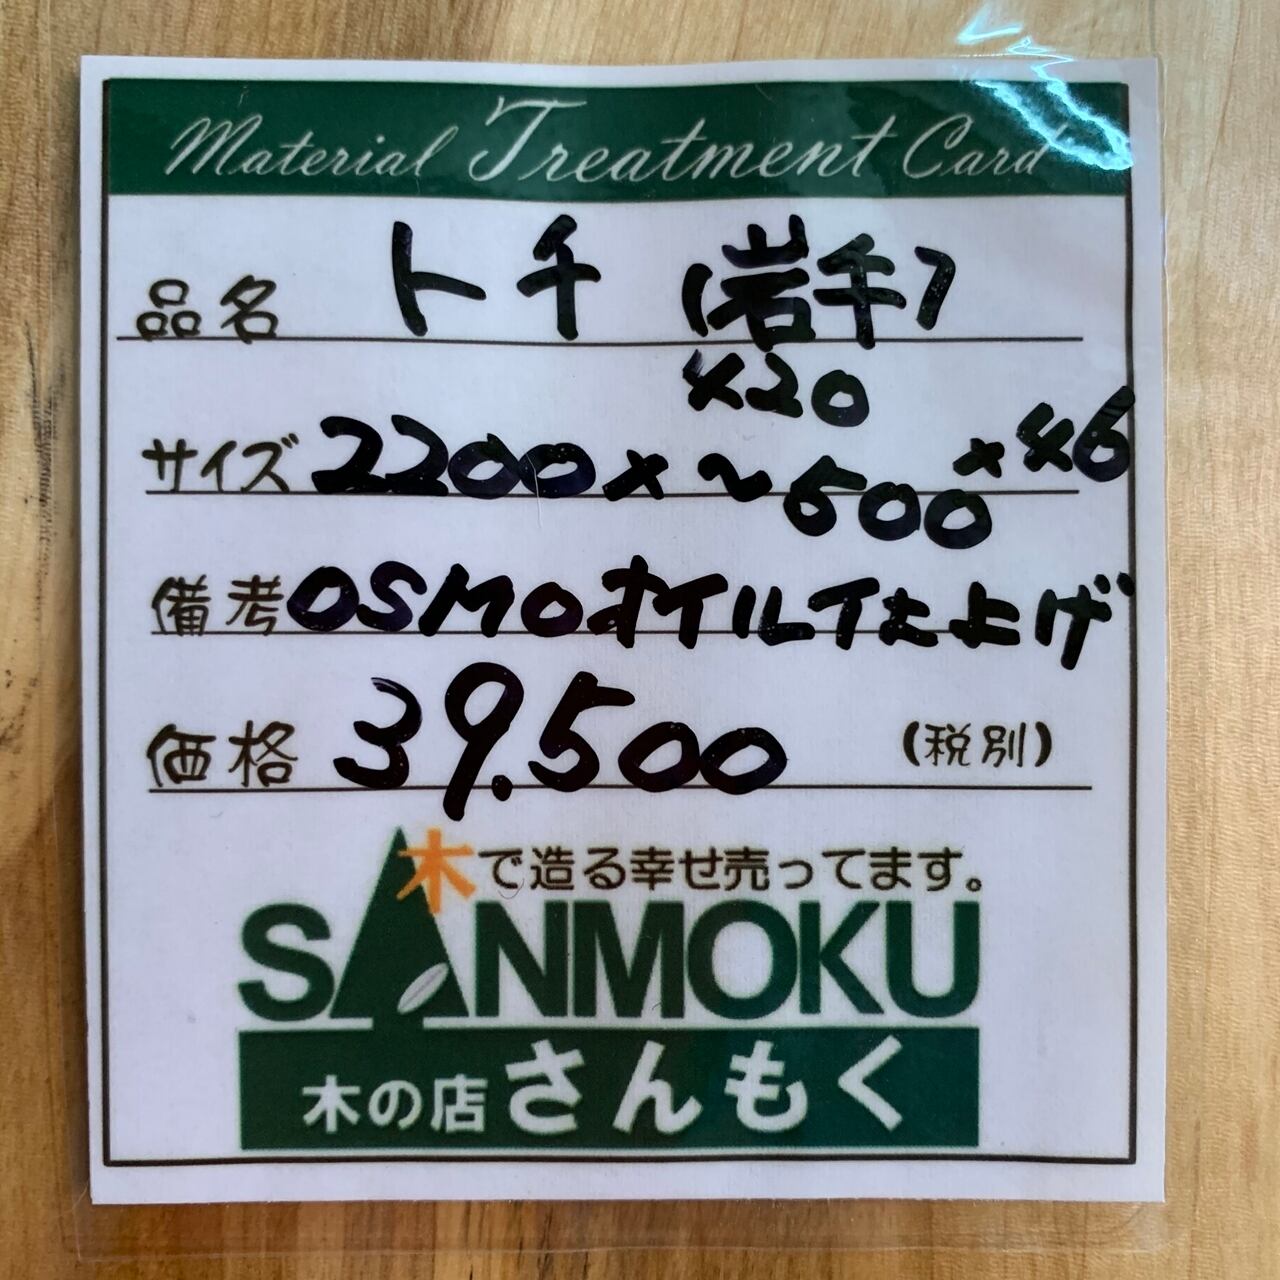 Material Treatment Card
品名 トチ (岩手)
サイズ 2200×420~500×46
備考 OSMOオイル仕上げ
価格 39.500 (税別)
木で造る幸せ売ってます。
SANMOKU
木の店 さんもく